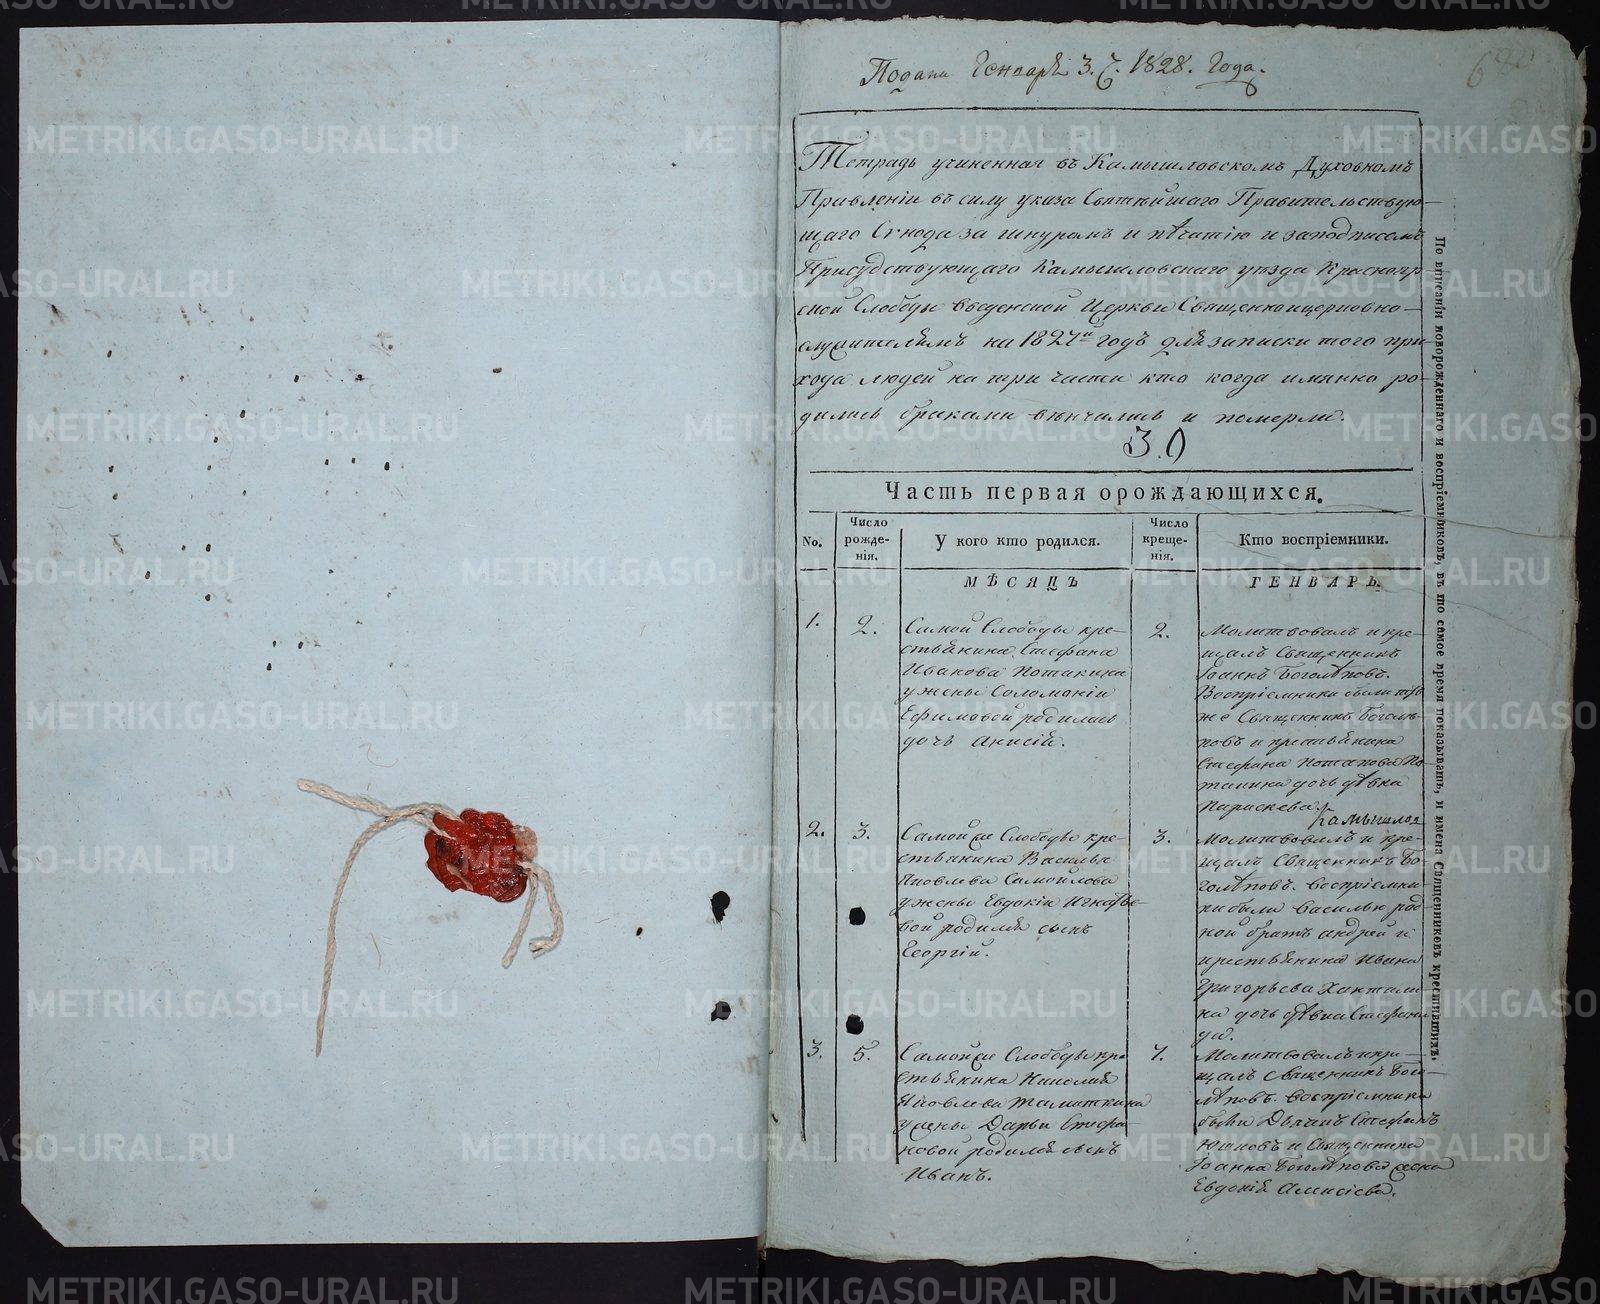 Подана Генваря 3. 1828. Года.
Тетрадь учиненная въ Камышловскомъ Духовномъ
Правленіи въ силу указа Святѣйшаго Правительствую-
щаго Синода за шнуромъ и печатію и заподписомъ
Присудствующаго Камышловскаго уѣзда Краснояр-
ской Слободы Введенской Церкви Священноцерковно-
служителямъ на 1827й годъ для записки того при-
хода людей на три части кто когда имянно ро-
дились браками вѣнчались и померли.
Часть первая орождающихся.
No.
Число рожде-нія.
У кого кто родился.
Число креще-нія.
Кто воспріемники.
МѢСЯЦЪ
ГЕНВАРЬ.
1.
2.
Самой Слободы кре-
стьянина Стефана
Иванова Потакина
у жены Соломаніи
Ефимовой родилась
дочь Анисія.
2.
Молитвовалъ и кре-
щалъ Священникъ
Іоаннъ Боголѣповъ.
Воспріемники были тотъ
же Священникъ Боголѣ-
повъ и крестьянина
Стефана Потапова По-
такина дочь дѣвка
Параскева.
2.
3.
Самой же Слободы кре-
стьянина Василья
Яковлева Самойлова
у жены Евдокіи Игнатье-
вой родился сынъ
Георгій.
3.
Молитвовалъ и кре-
щалъ Священникъ Бо-
голѣповъ. воспріемни-
ки были Василья род-
ной братъ Андрей и
крестьянина Ивана
Григорьева
на дочь дѣвка Стефани-
да.
3.
5.
Самой же Слободы кре-
стьянина Николая
Яковлева
у жены Дарьи Стефа-
новой родился сынъ
Иванъ.
7.
Молитвовалъ и кре-
щалъ Священникъ Бого-
лѣповъ. воспріемники
были Стефанъ
и Священника
Іоанна Боголѣпова жена
Евдокія Алексіева.
По вписаніи новорожденнаго и воспріемниковъ, въ то самое время показывать, и имена Священниковъ крестившихъ.
METRIKI.GASO-URAL.RU